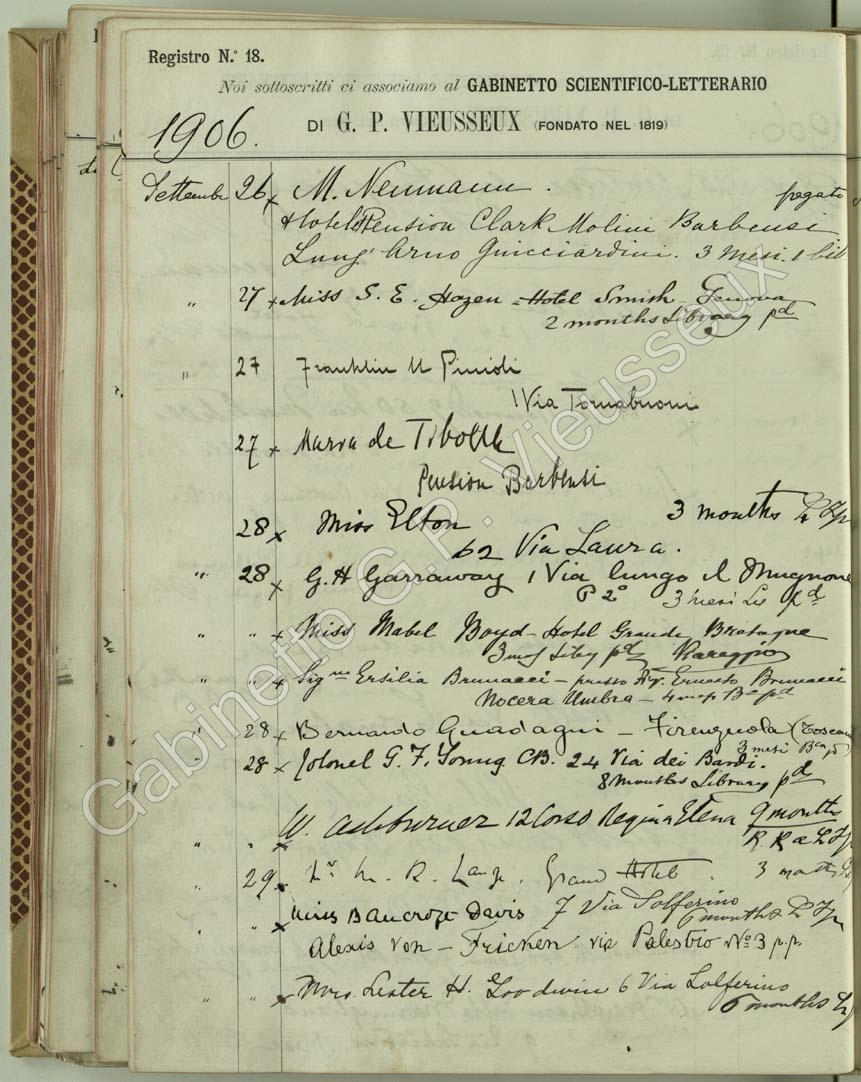 Registro N.° 18.
Noi sottoscritti ci associamo al GABINETTO SCIENTIFICO-LETTERARIO
DI G. P. VIEUSSEUX (FONDATO NEL 1819)
1906.
Settembre 26 x M. Neumann. pagato
Hotel Pension Clark Molini Barbensi
Lung'Arno Guicciardini. 3 mesi. 1 bib
" 27 x Miss S. E. Hazen - Hotel Smith - Genova
2 months Library pd
" 27 Franklin
1 Via Tornabuoni
27 x Maria de
Pension Barbensi
28 x Miss Elton 3 months
62 Via Laura.
" 28 x G. H Garraway 1 Via lungo il Mugnone
P 2° 3 mesi pd
" " x Miss Mabel Boyd - Hotel Grande Bretagne
pd Viareggio
" " x Ersilia Brunacci - presso Ernesto Brunacci
Nocera Umbra - 4 pd
" 28 x Bernardo Guadagni - Firenzuola (Toscana
3 mesi
" 28 x Colonel G. F. Young CB. 24 Via dei Bardi.
8 months Library pd
" " x W. Ashburner 12 Corso Regina Elena 9 months
" 29 x R. Lange. Grand Hotel. 3 months
" " x Miss Bancroft Davis 7 Via Solferino
6 months
Alexis von - Fricken via Palestro No 3 p.p.
" " x Mrs. Lester H. Goodwin 6 Via Solferino
6 months
Gabinetto G.P. Vieusseux